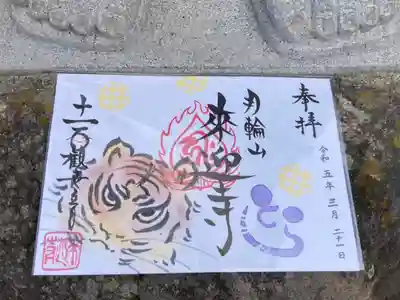 奉拝
令和五年三月二十一日
月輪山
来迎寺
とら
十一面観音